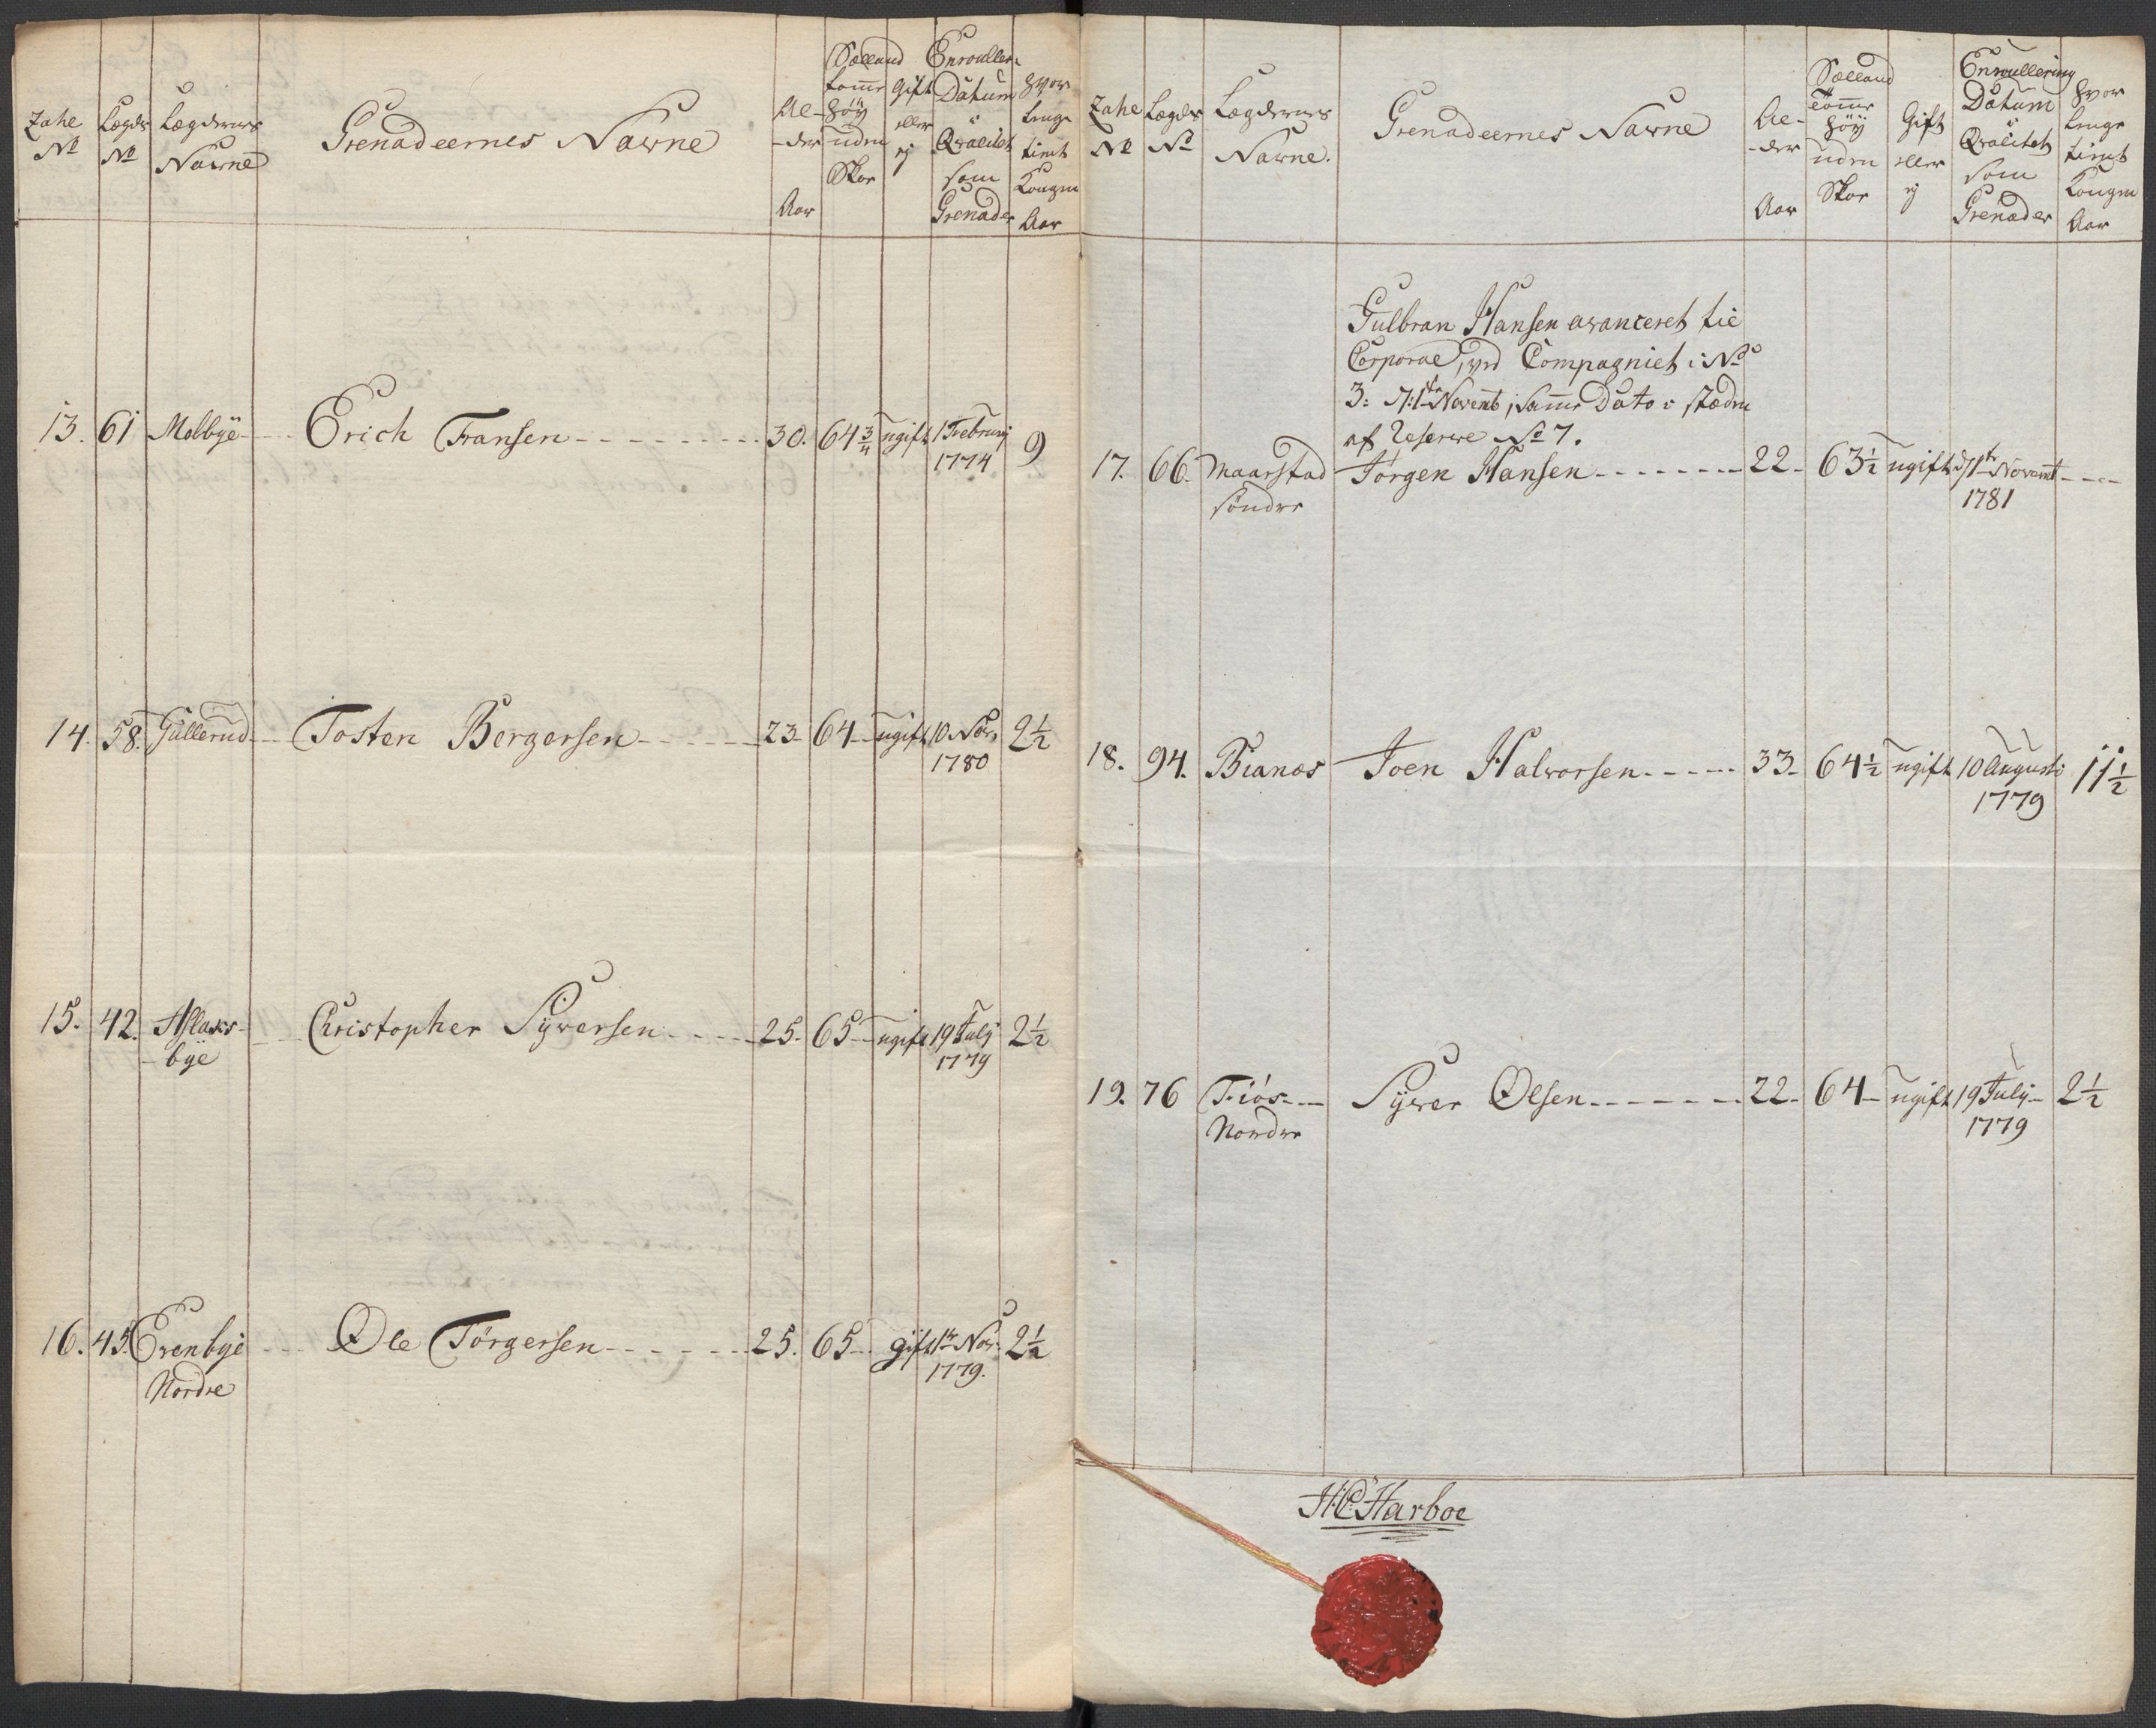 Zahl No
Lægds No
Lægdernes Nawne
Grenadeernes Nawne
Al-der Aar
Sælland tomr høÿ uden Skoe
Gift eller ej
Enroullerˢ Datum i Qvalitet som Grenader
Hvor lenge tient Kongen Aar
13. 61 Melbÿe Erich Fransen 30. 64 3/4 ugift 1 Febrarij 1774 9
14. 58. Gullerud Tosten Bergersen 23 64 ugift 10 Nov. 1780 2 1/2
15. 42. Aslaks-
bÿe Christopher Sÿversen 25. 65 ugift 19 Julj 1779 2 1/2
16. 45. Evenbÿe
Nordre Ole Törgersen 25. 65 gift 1te Nov. 1779. 2 1/2
Zahl No
Lægds No
Lægdernes Nawne.
Grenadeernes Nawne
Al-der Aar
Sælland tomr høÿ uden Skoe
Gift eller ej
Enroullering Datum i Qvalitet som Grenader
Hvor lenge tient Kongen Aar
Gulbran Hansen avanceret til
Corporal, ved Compagniet i No
3: d: 1te Novemb, Samme Dato i stæden
af Reserve No 7.
17. 66. Maarstad
söndre Jörgen Hansen 22 63 1/2 ugift d 1te Novemb 1781
18. 94. Bianæs Joen Halvorsen 33 64 1/2 ugift 10 Augusti 1779 11 1/2
19. 76 Fiös
Nordre Sÿver Olsen 22 64 ugift 19 Julj 1779 2 1/2
H C Harboe